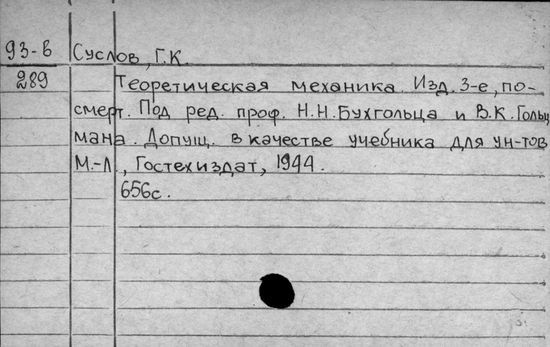 93-6 Суслов, Г.К.
289 Теоретическая механика. Изд. 3-е, по-
смерт. Под ред. проф. Н.Н.Бухгольца и В.К.Гольц
мана. Допущ. в качестве учебника для ун-тов
М.-Л., Гостехиздат, 1944.
656с.